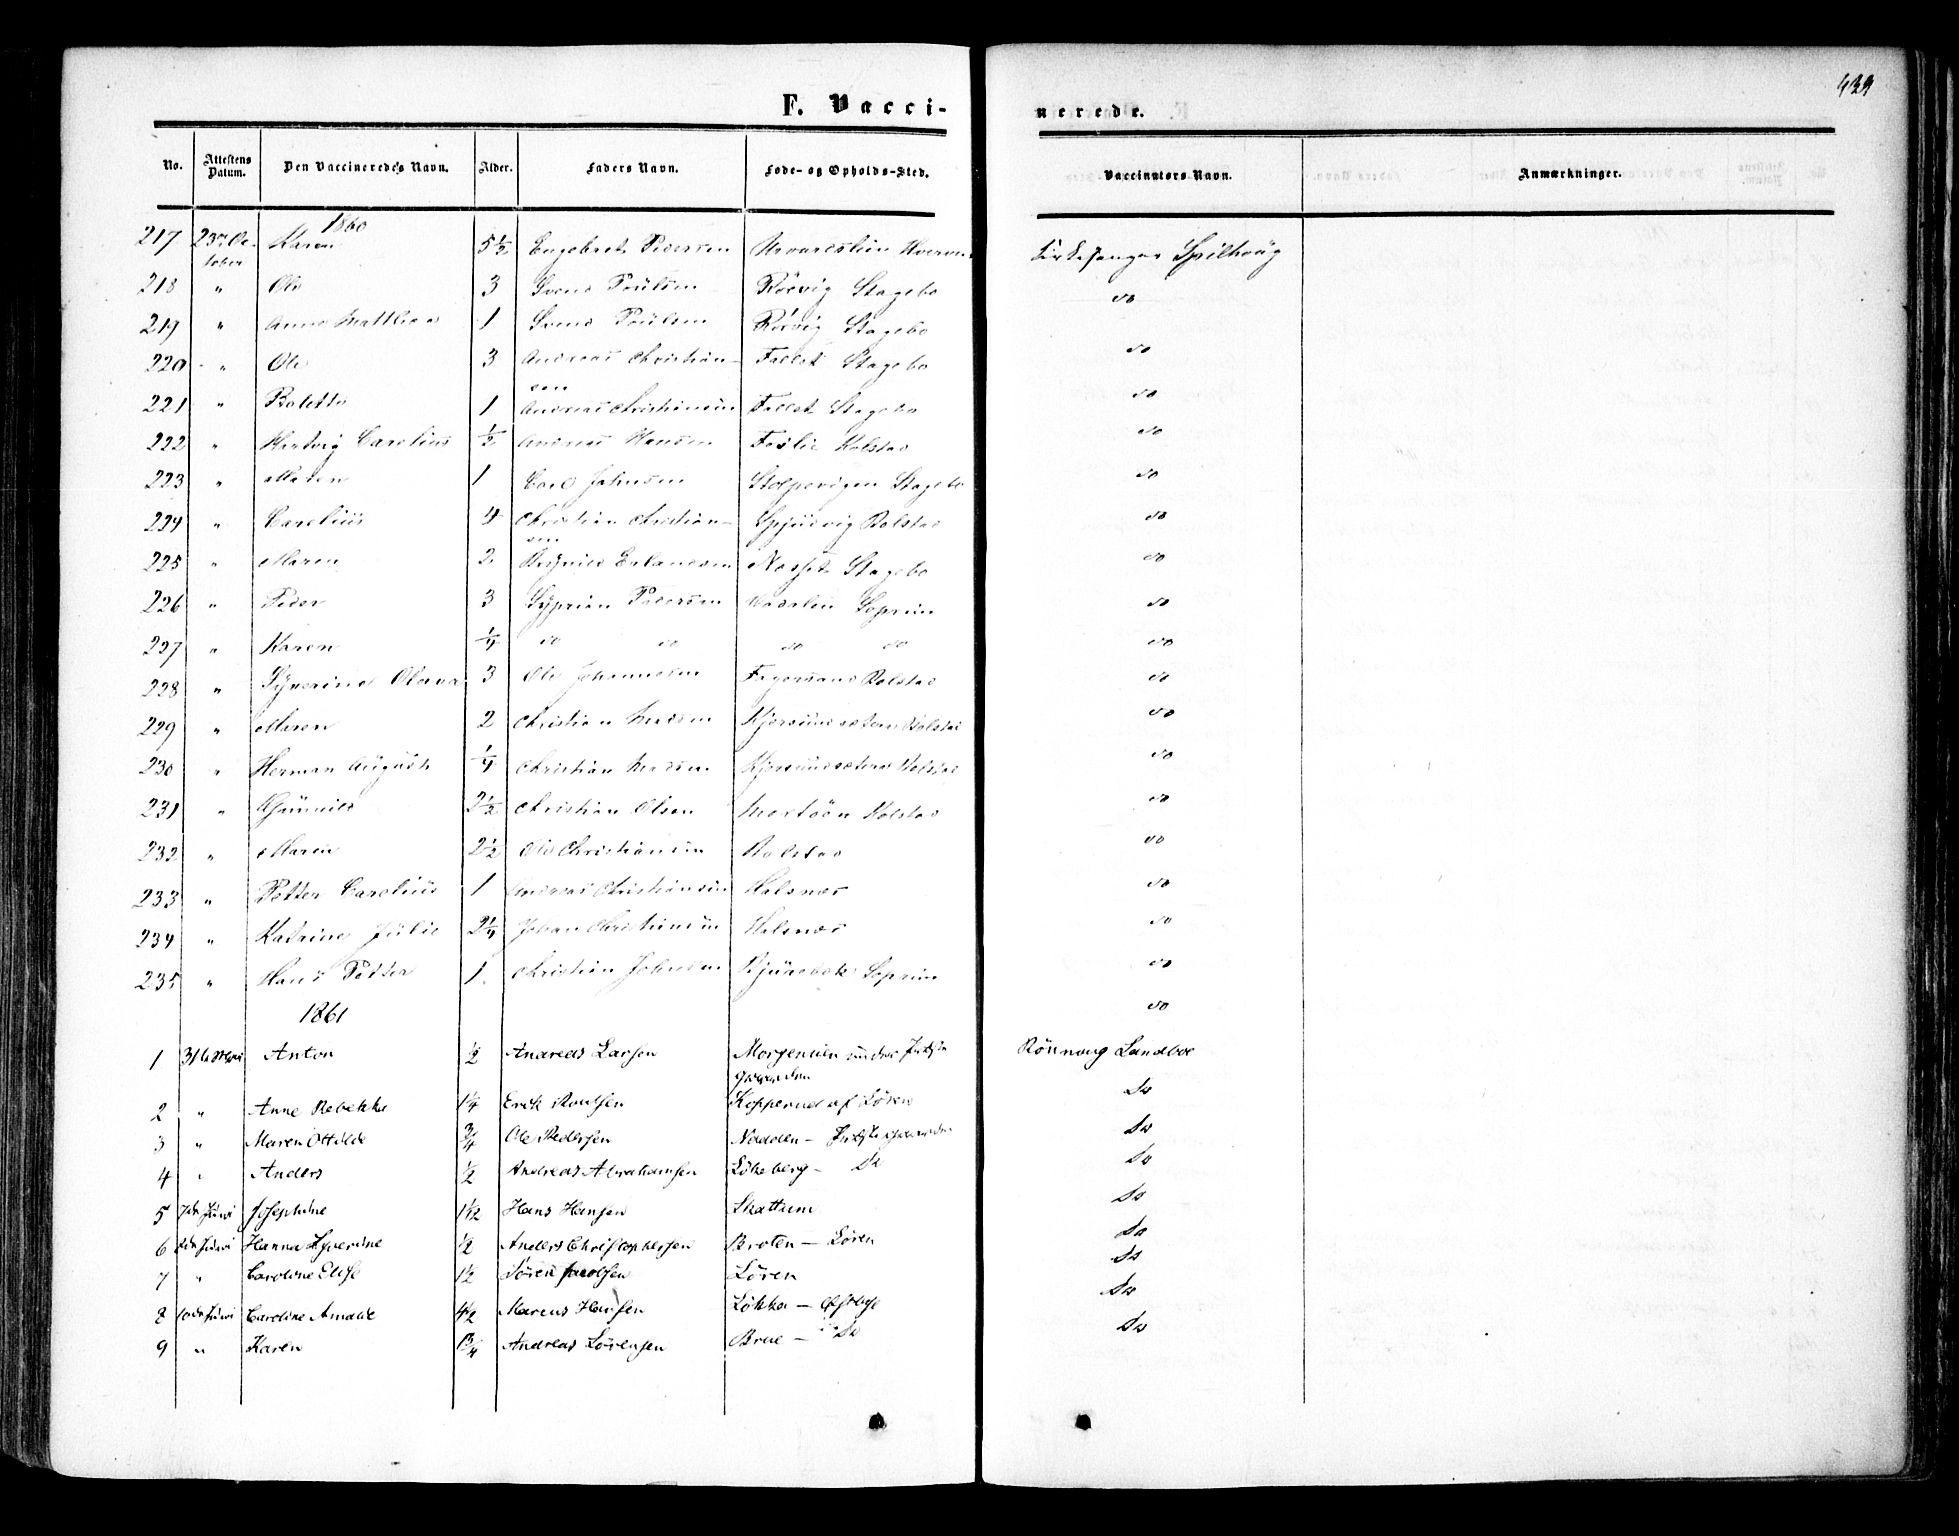 439
F. Vacci-
nerede.
No. Attestens Datum. Den Vaccineredes Navn. Alder. Faders Navn. Føde- og Opholds-Sted. Vaccinators Navn. Anmærkninger.
1860
217 23de October Karen 5½ Engebret Pedersen Kirkesanger Spilhoug
218 " Ole 3 Svend Poulsen Rörvig Stagebo do
219 " Anne Matthea 1 Svend Poulsen Rörvig Stagebo do
220 " Ole 3 Andreas Christiansen Fallet Stagebo do
221 " Bolette 1 Andreas Christiansen Fallet Stagebo do
222 " Hartvig Carelius ½ Andreas Hansen Foslie Rolstad do
223 " Maren 1 Carl Johnsen Stolpevigen Stagebo do
224 " Carelius 4 Christian Christiansen Spjudvig Rolstad do
225 " Maren 2 Brynild Erlandsen Nasset Stagebo do
226 " Peder 3 Syprian Pedersen Soprim do
227 " Karen ¼ do do do do do
228 " Syverine Olava 3 Ole Johannesen Fagersand Rolstad do
229 " Maren 2 Christian Madsen Kjersundsæteren Rolstad do
230 " Herman August ¼ Christian Madsen Kjersundsæteren Rolstad do
231 " Gunnild 2½ Christian Olsen Mortöen Rolstad do
232 " Maren 2½ Ole Christiansen Rolstad do
233 " Petter Carelius 1 Andreas Christiansen Halsnæs do
234 " Katrine Julie 2¼ Johan Christiansen Halsnæs do
235 " Hans Petter 1 Christian Johnsen Soprim do
1861 do
1 31te Anton ½ Andreas Larsen Morgensien under Rönnaug Landboe
2 " Anne Rebekka 1¼ Erik Poulsen Kopperud af Løren Do
3 " Maren Ottilde ¾ Ole Pedersen Nadden - Do
4 " Anders ½ Andreas Abrahamsen Løkeberg - Do Do
5 7de Juni Josephine 1½ Hans Hansen Skattum Do
6 8de Juni Hanna Syverine ½ Anders Christophersen Broten - Løren Do
7 " Caroline Elise 1½ Søren Jacobsen Løren Do
8 10de Juni Caroline Amalie 4½ Marcus Hansen Løkka - Østbye Do
9 " Karen 1¾ Andreas Sørensen Brue - Do Do